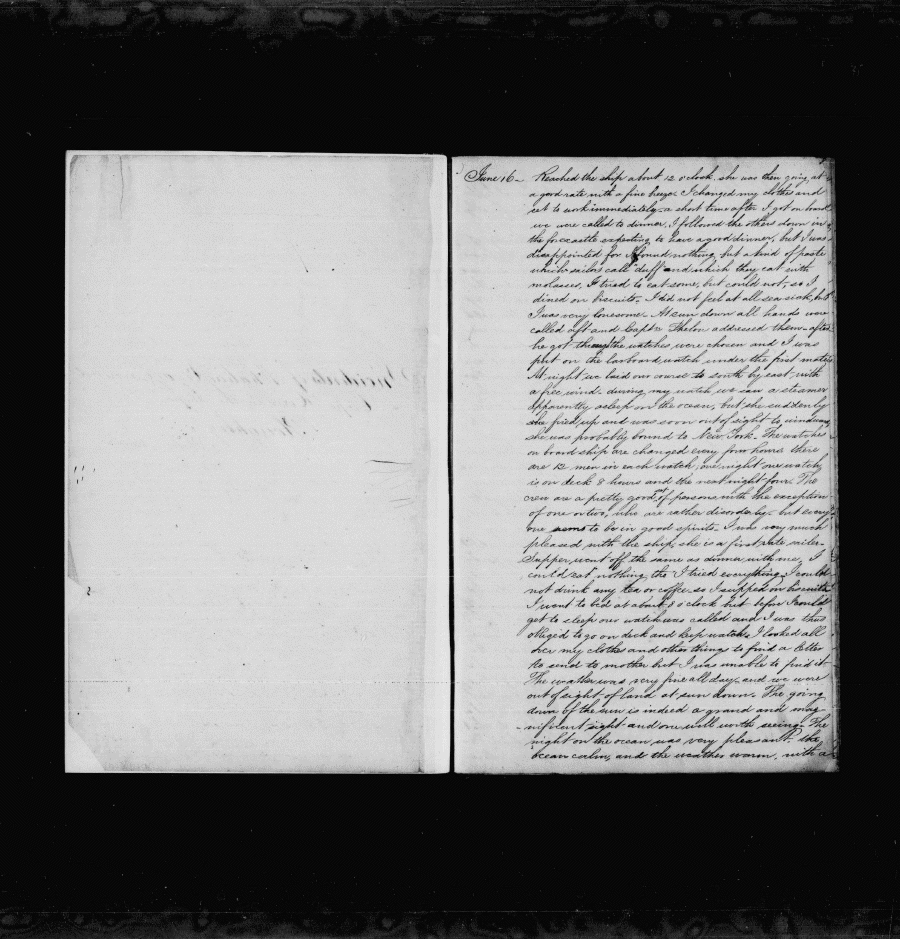 June 16 - Reached the ship about 12 o'clock, she was then going at
a good rate with a fine breeze. I changed my clothes and
set to work immediately - a short time after I got on board
we were called to dinner, I followed the others down in
the forecastle expecting to have a good dinner, but I was
disappointed for I found nothing but a kind of paste
which sailors call "duff" and which they eat with
molasses, I tried to eat some, but could not, so I
dined on biscuits - I did not feel at all sea sick, but
I was very lonesome. At sun down all hands were
called aft and Captn Thelon addressed them - after
he got through the watches were chosen and I was
put on the larboard watch under the first mate.
At night we laid our course to south by east, with
a free wind - during my watch we saw a steamer
apparently asleep on the ocean, but she suddenly
she fired up and was soon out of sight to windward,
she was probably bound to New York. The watches
on board ship are changed every four hours there
are 12 men in each watch, one night one watch
is on deck 8 hours and the next night four. The
crew are a pretty good set of persons with the exception
of one or two, who are rather disorderly - but every
one seems to be in good spirits - I was very much
pleased with the ship, she is a first rate sailer -
Supper went off the same as dinner with me, I
could eat nothing, tho' I tried everything, I could
not drink any tea or coffee so I supped on biscuits
I went to bed at about 8 o'clock but before I could
get to sleep our watch was called and I was thus
obliged to go on deck and keep watch, I looked all
over my clothes and other things to find a letter
to send to mother but I was unable to find it
The weather was very fine all day - and we were
out of sight of land at sun down. The going
down of the sun is indeed a grand and mag-
-nificent sight and one well worth seeing - The
night on the ocean was very pleasant - the
ocean calm, and the weather warm, with a